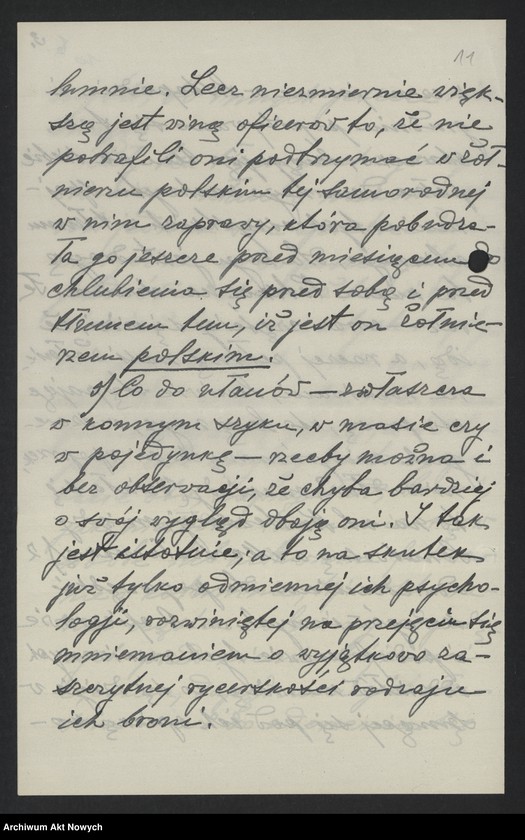 11
lumnie. Lecz niezmiernie więk-
szą jest winą oficerów to, że nie
potrafili oni podtrzymać w żoł-
nierzu polskim tej samorodnej
w nim zaprawy, która pobudza-
ła go jeszcze przed miesiącem do
chlubienia się przed sobą i przed
tłumem tem, iż jest on żołnie-
rzem polskim.
Co do ułanów — zwłaszcza
w konnym szyku, w masie czy
w pojedynkę — rzecby można i
bez obserwacji, że chyba bardziej
o swój wygląd dbają oni. I tak
jest istotnie; a to na skutek
już tylko odmiennej ich psycho-
logji, rozwiniętej na przejęciu się
mniemaniem o wyjątkowo za-
szczytnej rycerskości rodzaju
ich broni.
Archiwum Akt Nowych